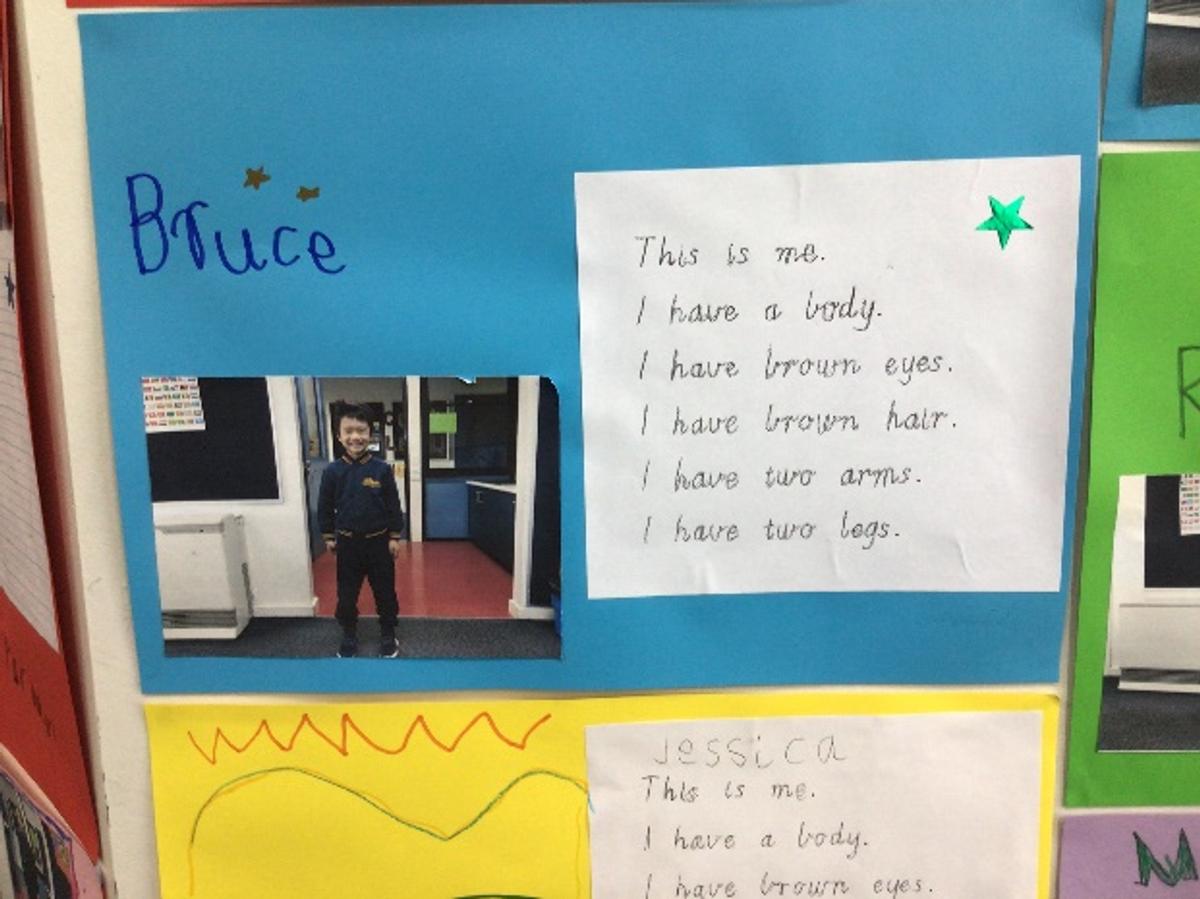 Bruce
This is me.
I have a body.
I have brown eyes.
I have brown hair.
I have two arms.
I have two legs.
Jessica
This is me.
I have a body.
I have brown eyes.
R
M